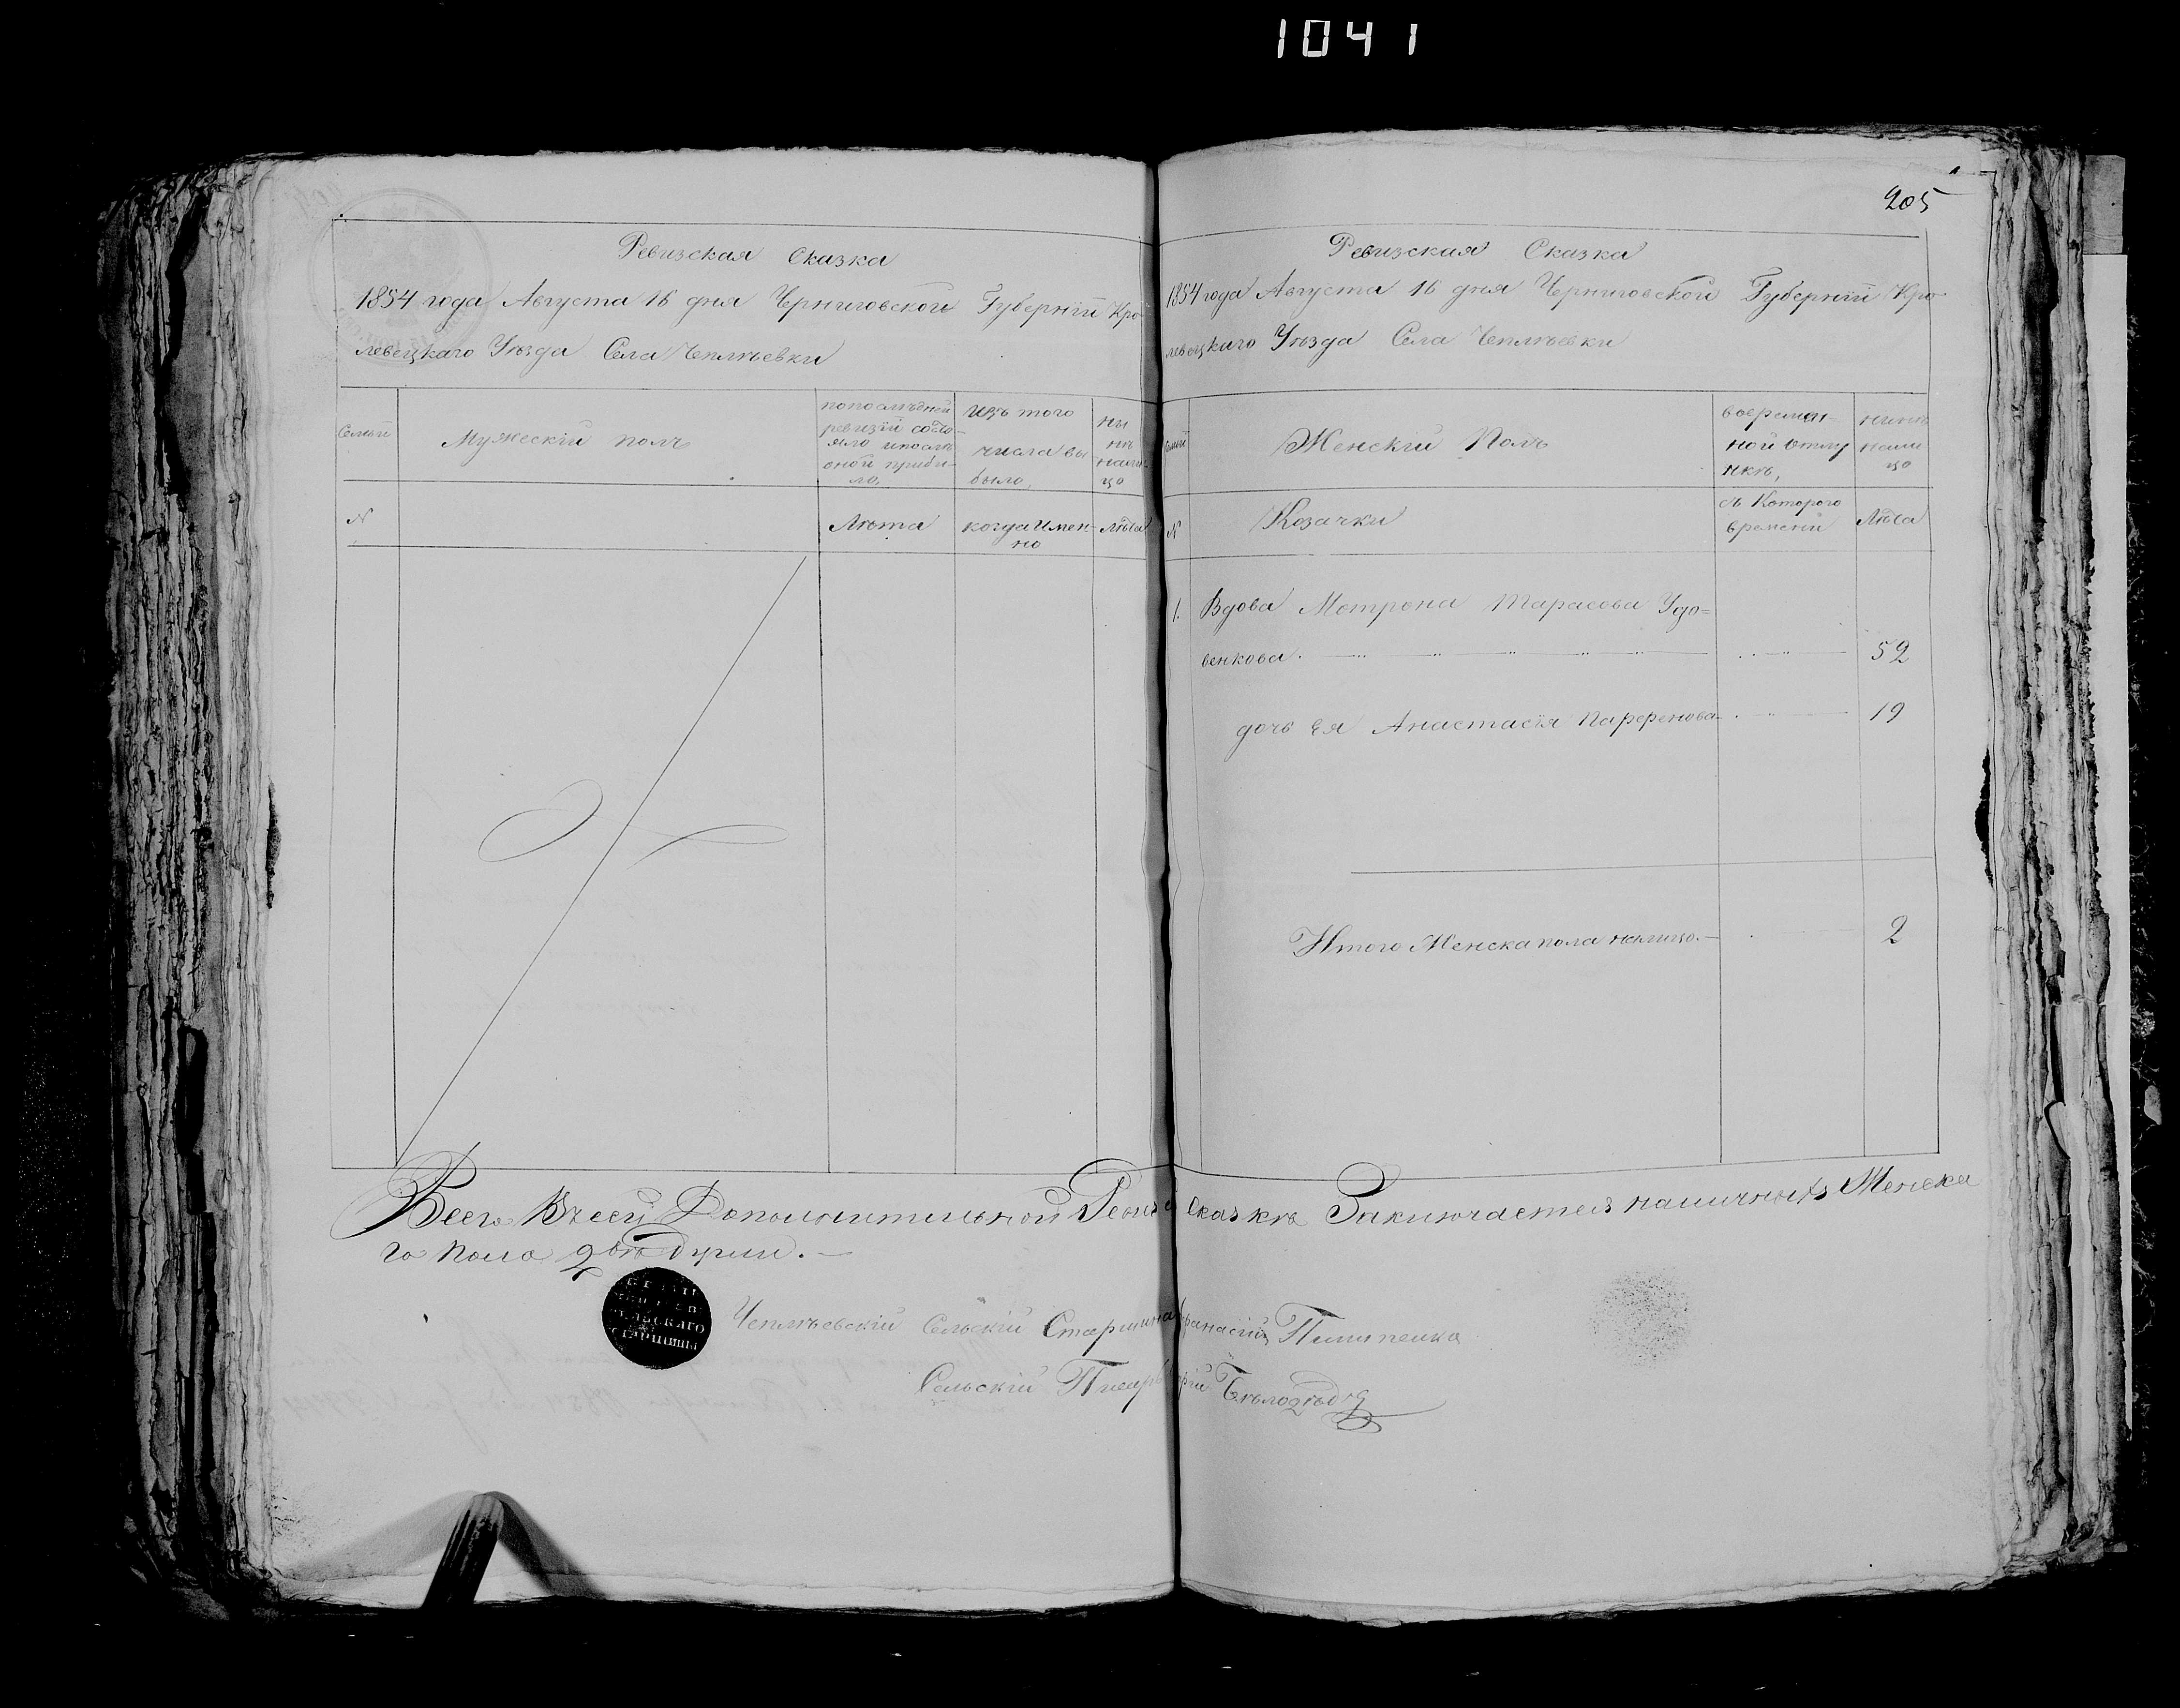 1041
205
Ревизская Сказка
1854 года Августа 16 дня Черниговской Губерніи Кро
левецкаго Уѣзда Села Чеплѣевки
Семьи
Мужескій полъ
по послѣдней
ревизіи состо-
яло и послѣ
оной прибы-
ло,
изъ того
числа вы-
было,
ны
нѣ
нали-
цо
№
Лѣта
когда имен-
но
Лѣта
Ревизская Сказка
1854 года Августа 16 дня Черниговской Губерніи Кро-
левецкаго Уѣзда Села Чеплѣевки
Семьи
Женскій Полъ
во времен-
ной отлу
чкѣ,
нынѣ
нали
цо
№
Козачки
съ Которого
времени
Лѣта
1. Вдова Мотрона Тарасова Удо=
венкова 52
дочь Ея Анастасія Парфенова 19
Итого Женска пола налицо.— 2
Всего Въ сей Дополнительной Сказкѣ Заключается наличныхъ Женска
го пола 2вѣ Души.—
Чеплѣевскій Сельскій Старшина Афанасій Пилипенко
Сельскій Писарь
льскаго
старшины